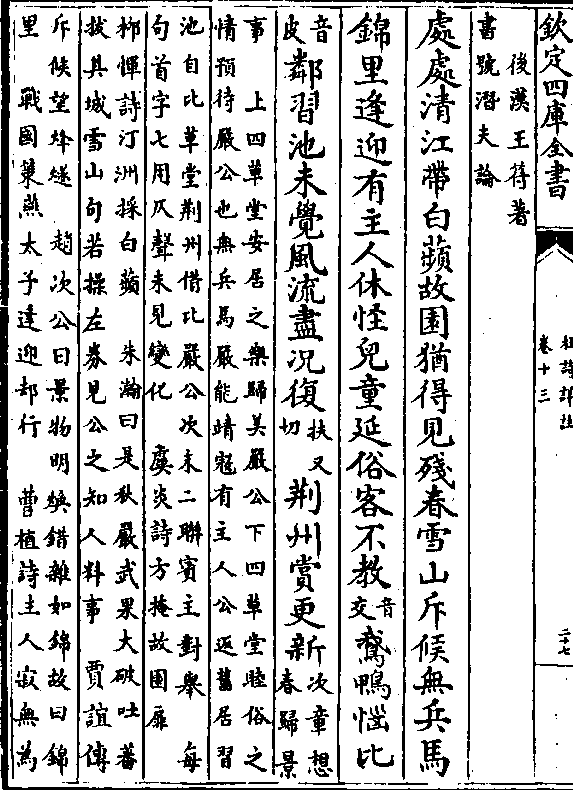 欽定四庫全書
杜詩詳註
卷十三
二十七
後漢王符著
書號潛夫論
處處清江帶白蘋故園猶得見殘春雪山斥候無兵馬
錦里逢迎有主人休怪兒童延俗客不教音交鵞鴨惱比
音皮鄰習池未覺風流盡況復扶又切荆州賞更新次章想春歸景
事 上四草堂安居之樂歸美嚴公下四草堂睦俗之
情預待嚴公也無兵馬嚴能靖寇有主人公返舊居習
池自比草堂荆州借比嚴公次末二聯賓主對舉 每
句首字七用仄聲未見變化 虞炎詩方掩故園扉
柳惲詩汀洲採白蘋 朱瀚曰是秋嚴武果大破吐蕃
拔其城雪山句若操左券見公之知人料事 賈誼傳
斥候望烽燧 趙次公曰景物明煥錯雜如錦故曰錦
里 戰國策燕太子逢迎却行 曹植詩主人寂無為